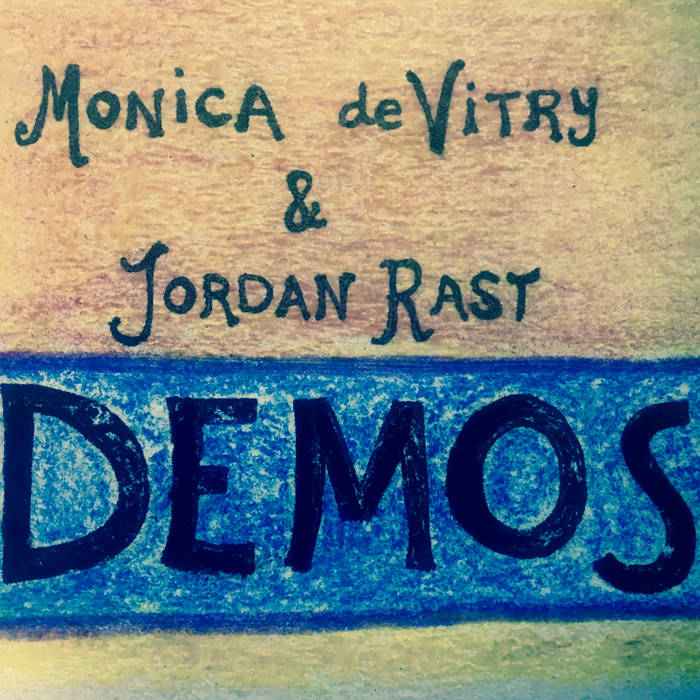 MONiCA deViTRY
&
JORDAN RAST
DEMOS